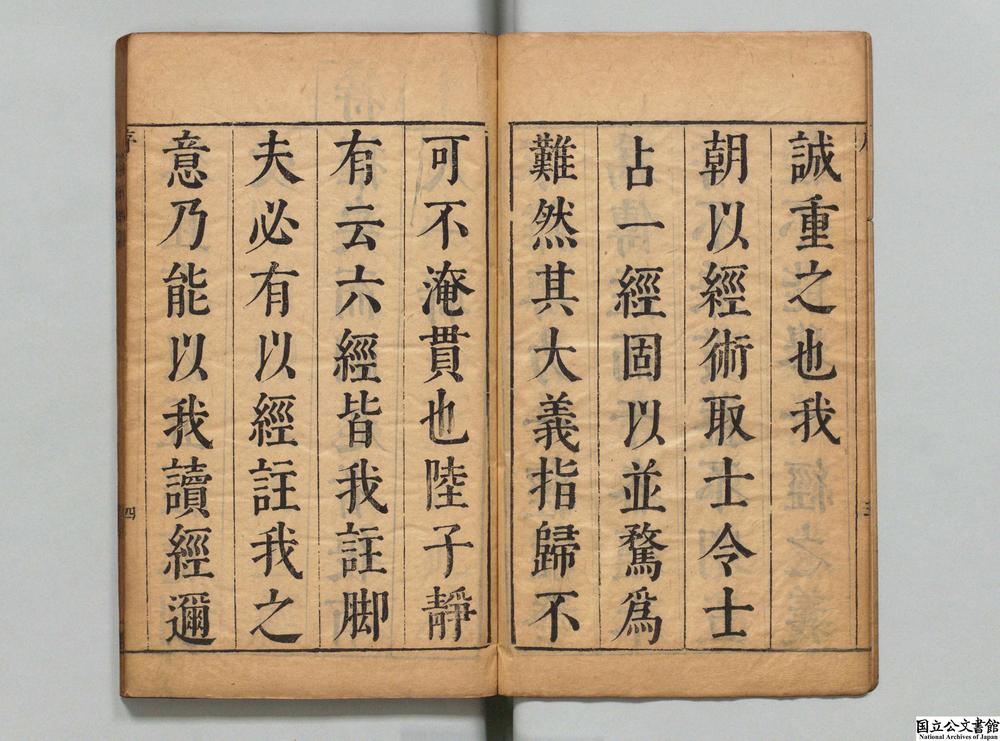 誠重之也我
朝以經術取士令士
占一經固以並騖爲
難然其大義指歸不
可不淹貫也陸子靜
有云六經皆我註脚
夫必有以經註我之
意乃能以我讀經邇
序
四
三
国立公文書館
National Archives of Japan